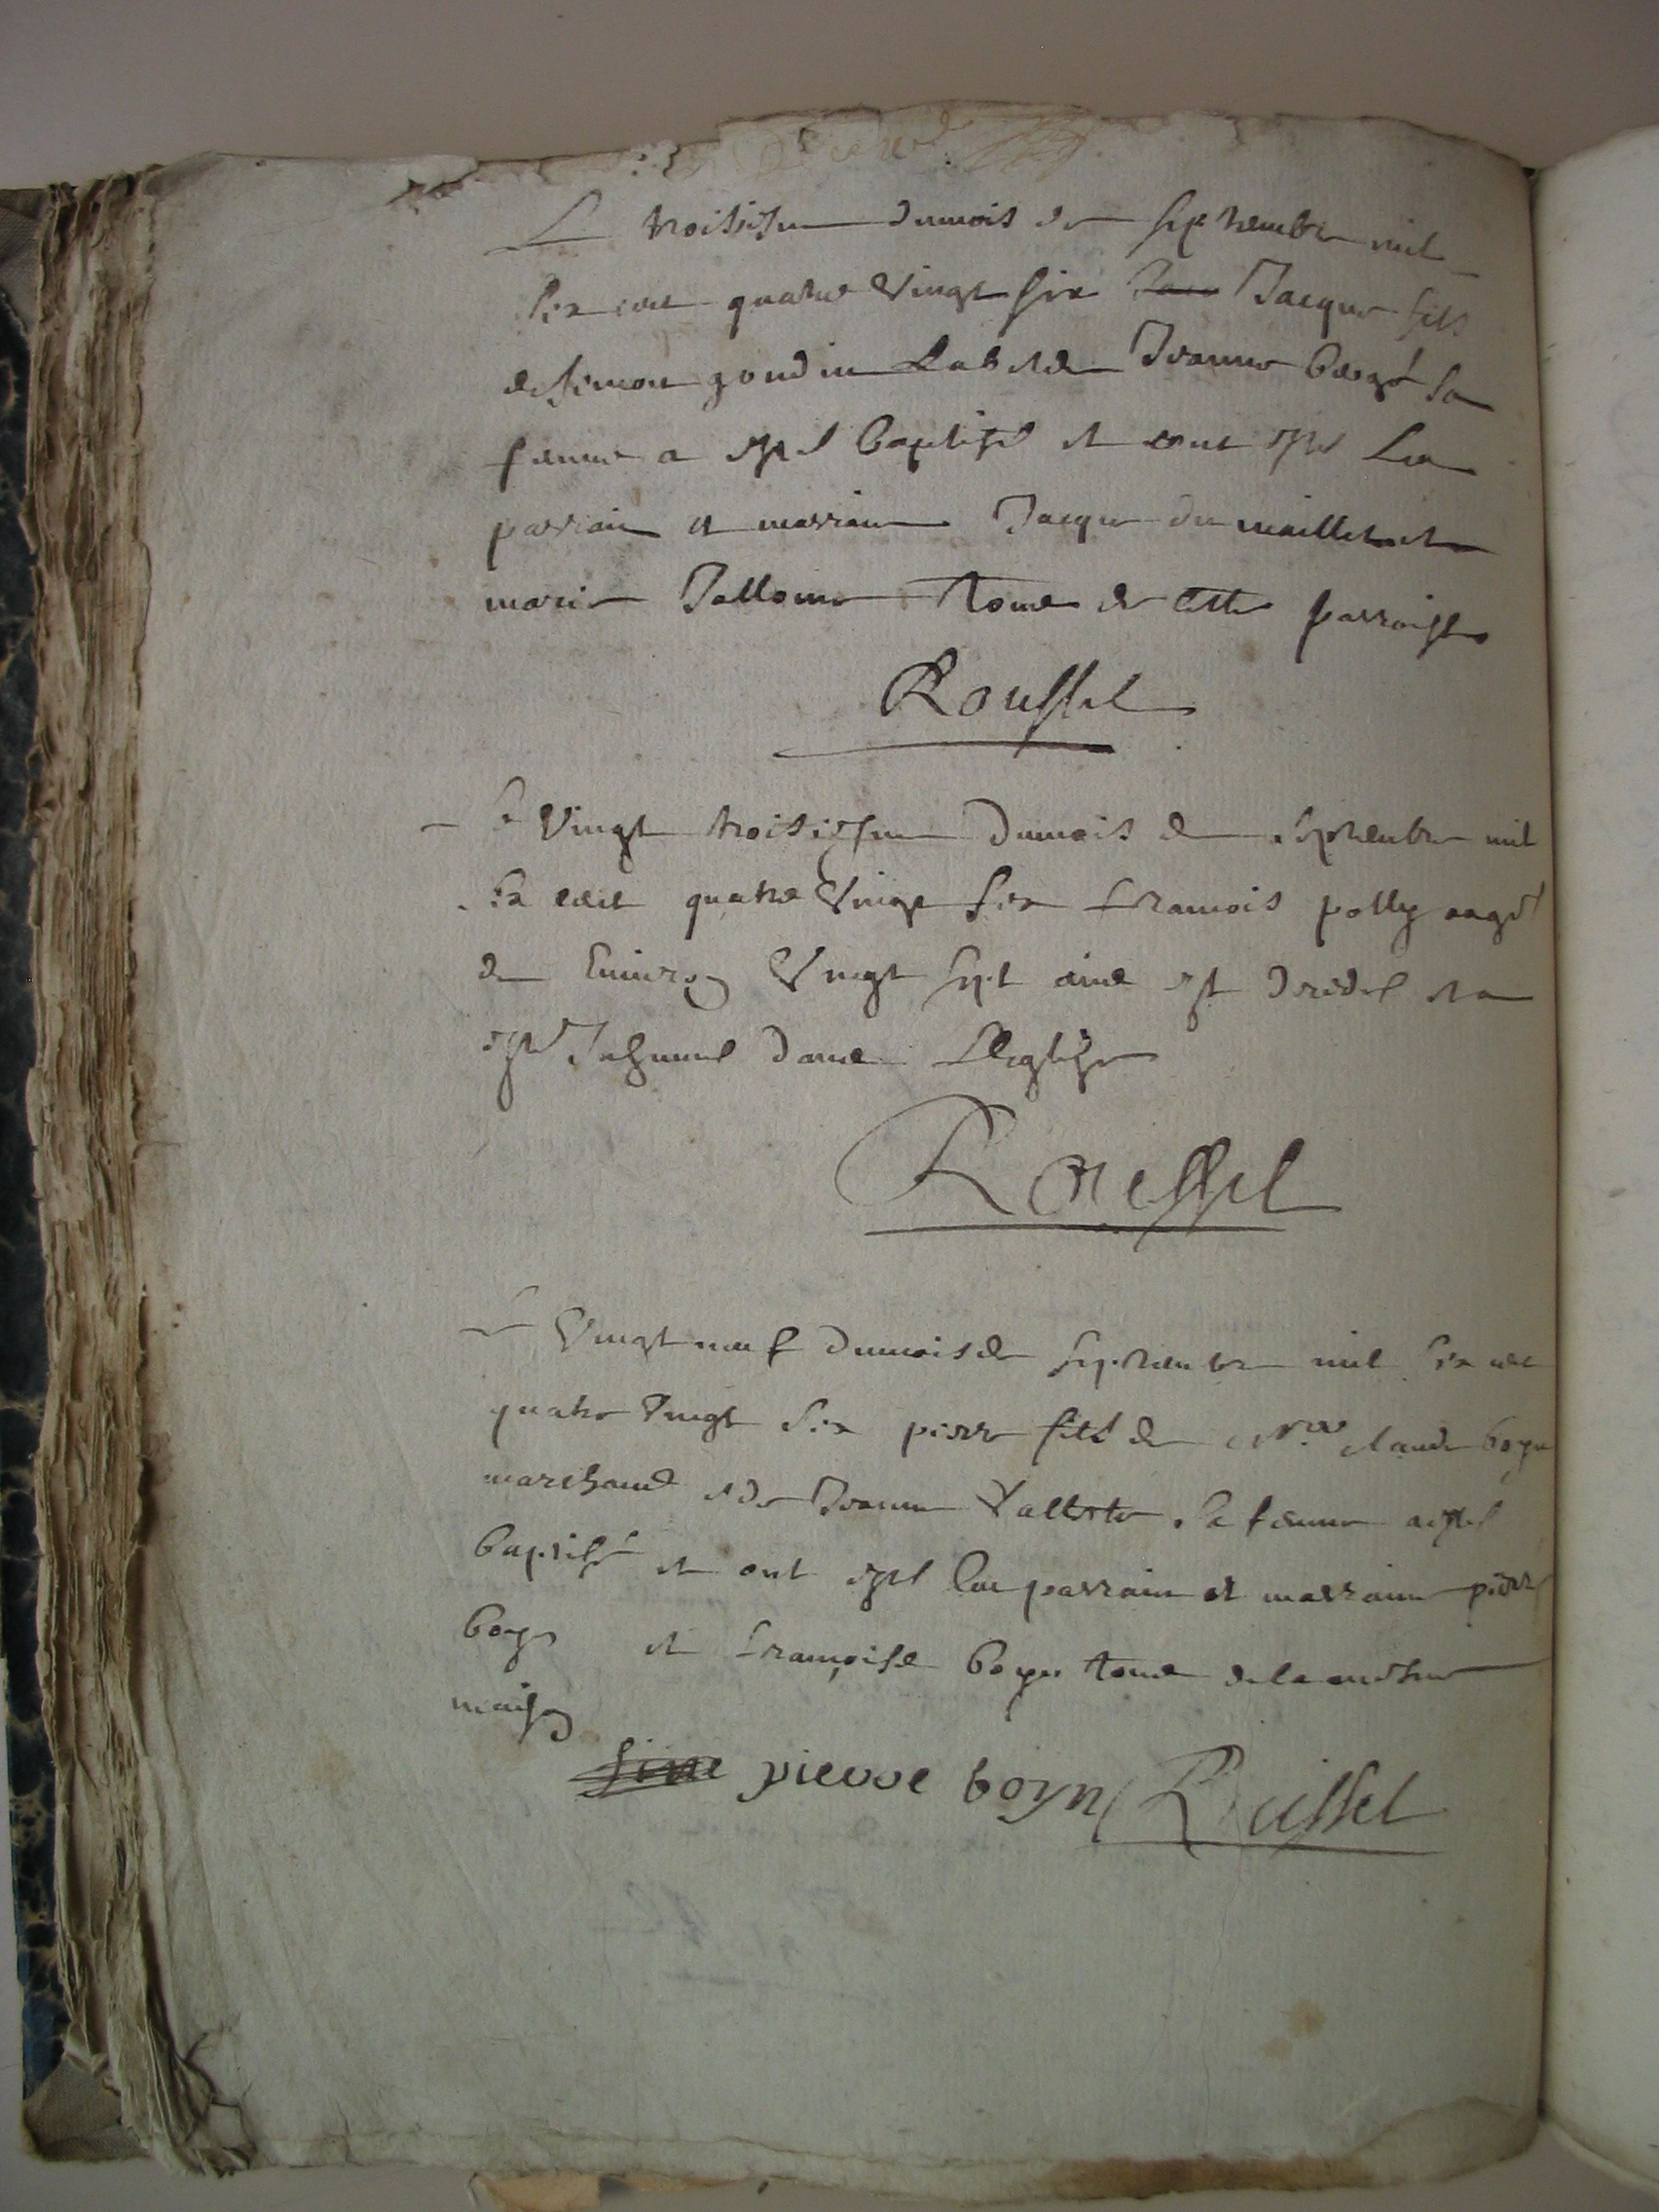 Le troisiesme du mois de septembre mil
six cent quatre vingt six Jacques fils
de simon gondin Lab et de Jeanne sa
femme a esté baptisé et ont esté Les
parrain et marraine Jacques du maillet et
marie Jallome tous de cette parroisse
Roussel
Le Vingt troisiesme du mois de septembre mil
six cent quatre Vingt six francois polly aagé
de Environ Vingt sept ans est decedé et a
esté Inhumé dans L'eglise
Roussel
Le Vingt neuf du mois de septembre mil six cent
quatre Vingt six pierre fils de claude boyn
marchand et de Jeanne Vallette sa femme a esté
baptisé et ont esté Les parrain et marraine pierre
boyn et francoise boyn tous de la mesme
maison
pierre boyn Roussel